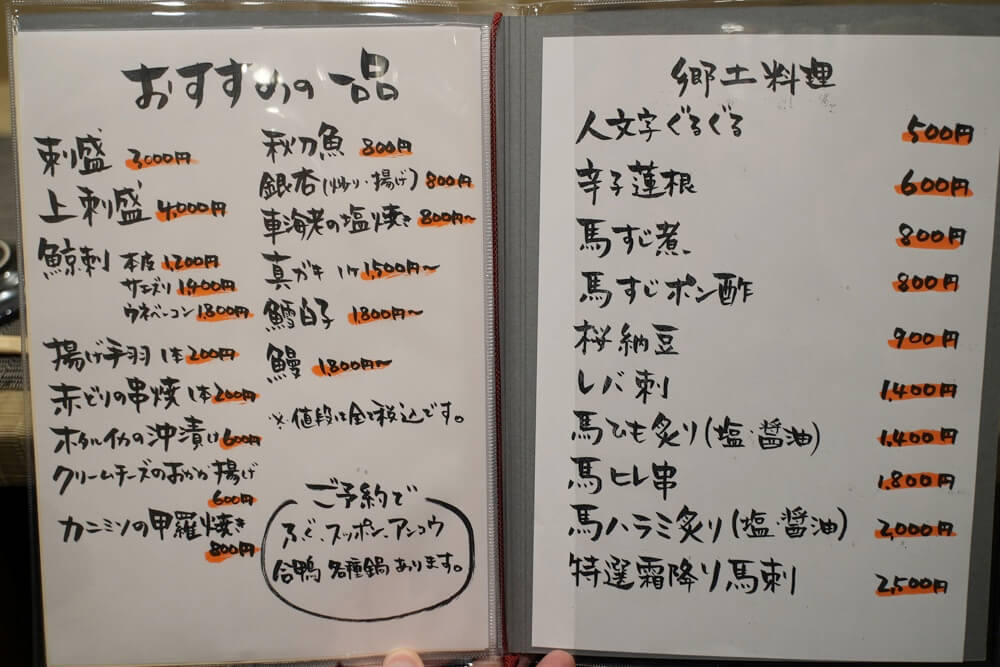 おすすめの一品
刺盛 3,000円
上刺盛 4,000円
鯨刺 本皮 1,200円
サエズリ 1,400円
ウネベーコン 1,800円
揚げ手羽 1本 200円
赤どりの串焼 1本 200円
ホタルイカの沖漬け 600円
クリームチーズのおかか揚げ
600円
カニミソの甲羅焼き
800円
秋刀魚 800円
銀杏(炒り・揚げ) 800円
車海老の塩焼き 800円~
真ガキ 1ケ 1,500円~
鱈白子 1,800円~
鰻 1,800円~
※値段は全て税込です。
ご予約で
ふぐ、スッポン、アンコウ
合鴨 各種鍋あります。
郷土料理
人文字ぐるぐる 500円
辛子蓮根 600円
馬すじ煮 800円
馬すじポン酢 800円
桜納豆 900円
レバ刺 1,400円
馬ひも炙り(塩・醤油) 1,400円
馬ヒレ串 1,800円
馬ハラミ炙り(塩・醤油) 2,000円
特選霜降り馬刺 2,500円